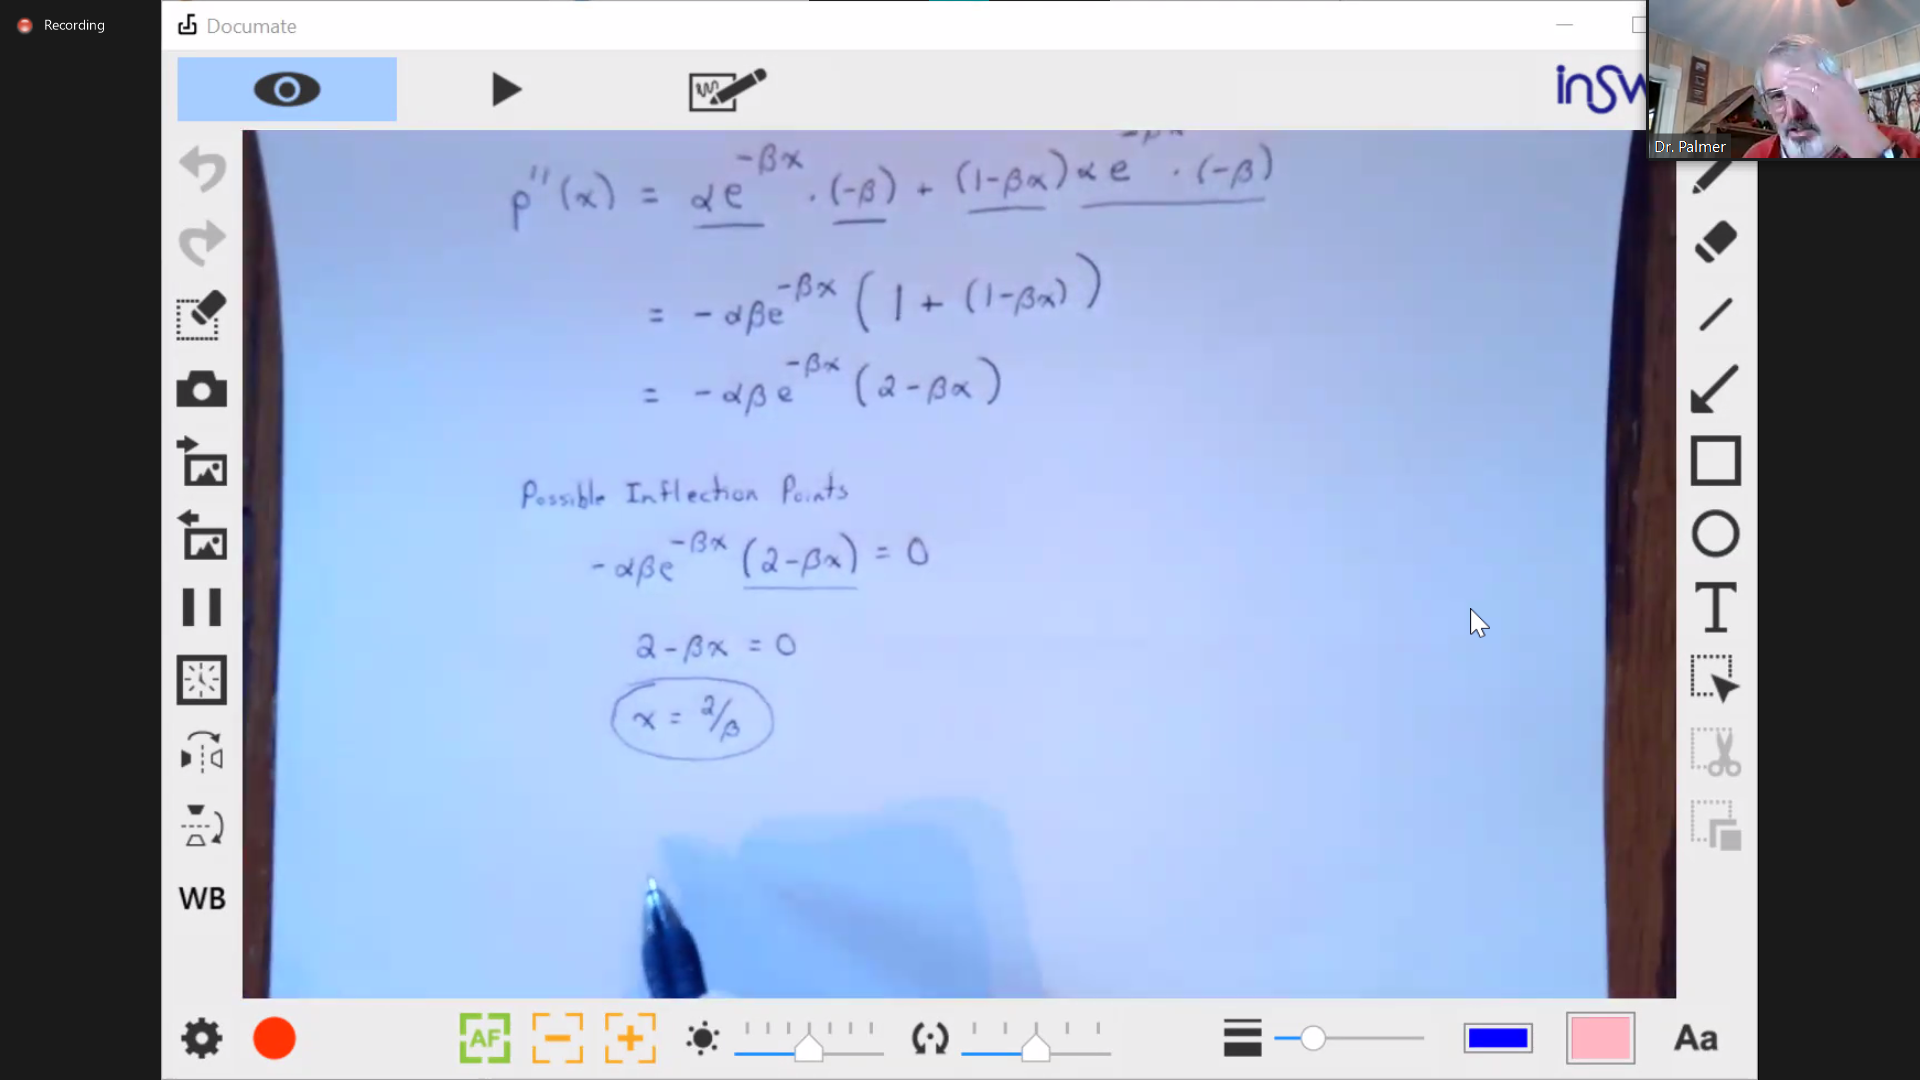 Recording
Documate
inSw
Dr. Palmer
p''(x) = αe^{-βx} · (-β) + (1-βx) αe^{-βx} · (-β)
= -αβe^{-βx} ( 1 + (1-βx) )
= -αβe^{-βx} (2-βx)
Possible Inflection Points
-αβe^{-βx} (2-βx) = 0
2-βx = 0
x = 2/β
T
WB
AF
Aa